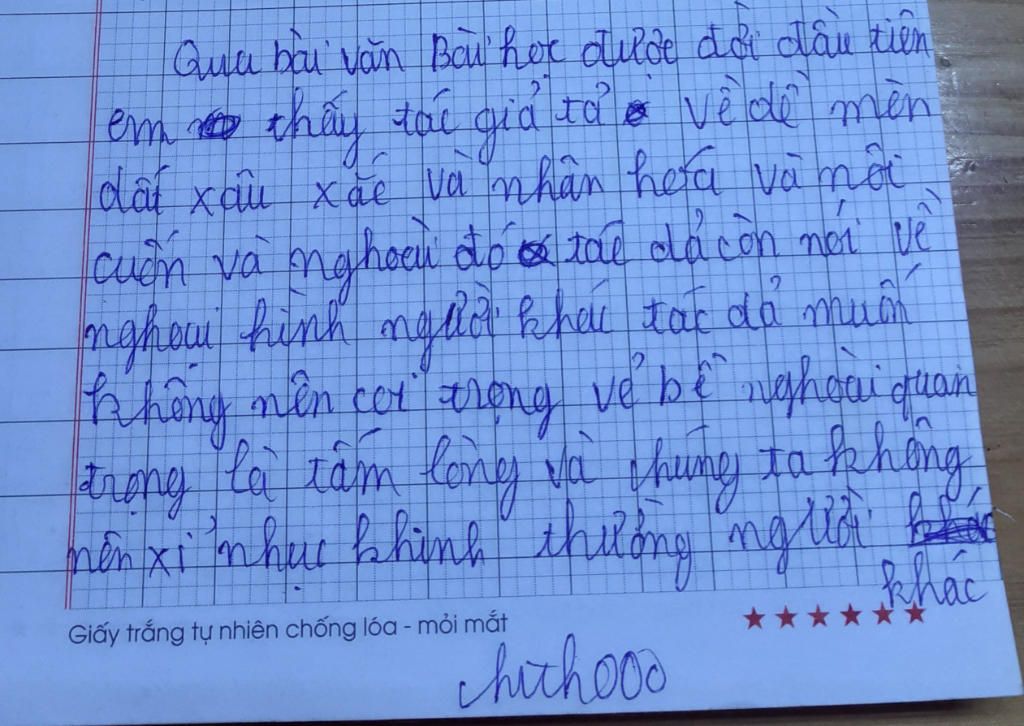 Qua bài văn Bài học được đời đầu tiên
em thấy tác giả tả về dế mèn
dất xấu xác và nhân hóa và nôi
cuốn và nghoài đó tác dả còn nói về
nghoại hình người khác tác dả muốn
không nên coi trọng vẻ bề nghoài quan
trọng là tấm lòng và chúng ta không
nên xỉ nhục khinh thường người
khác
Giấy trắng tự nhiên chống lóa - mỏi mắt